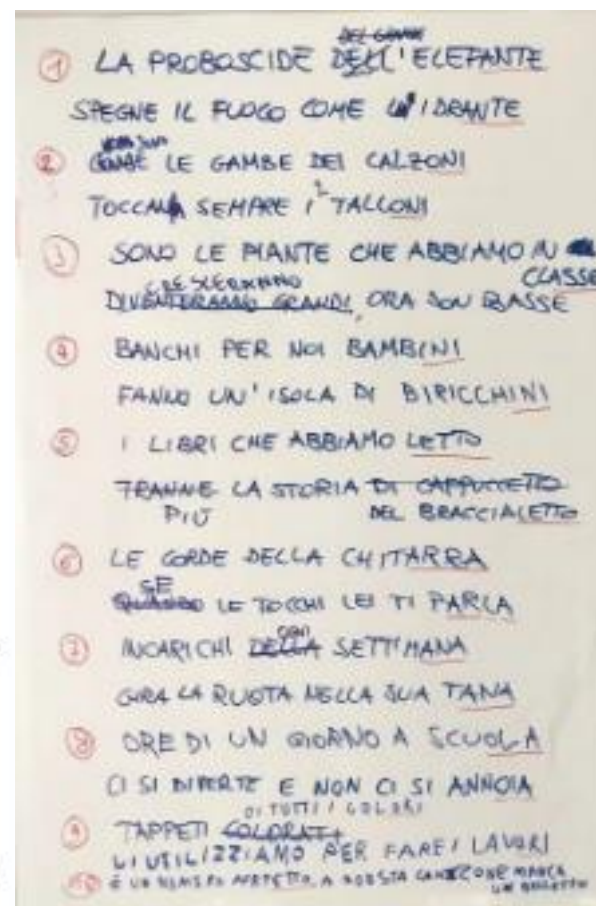 DEL GRANDE
1 LA PROBOSCIDE DELL'ELEFANTE
SPEGNE IL FUOCO COME UN IDRANTE
2 LE GAMBE DEI CALZONI
TOCCAN SEMPRE I 2 TALLONI
3 SONO LE PIANTE CHE ABBIAMO IN
CLASSE
CRESCERANNO
DIVENTERANNO GRANDI, ORA SON BASSE
4 BANCHI PER NOI BAMBINI
FANNO UN'ISOLA DI BIRICCHINI
5 I LIBRI CHE ABBIAMO LETTO
TRANNE LA STORIA DI CAPPUCCETTO
PIÙ DEL BRACCIALETTO
6 LE CORDE DELLA CHITARRA
SE
QUANDO LE TOCCHI LEI TI PARLA
7 INCARICHI DELLA SETTIMANA
OGNI
GIRA LA RUOTA NELLA SUA TANA
8 ORE DI UN GIORNO A SCUOLA
CI SI DIVERTE E NON CI SI ANNOIA
DI TUTTI I COLORI
9 TAPPETI COLORATI
LI UTILIZZIAMO PER FARE I LAVORI
10 È UN NUMERO PERFETTO, A QUESTA CANZONE MANCA
UN